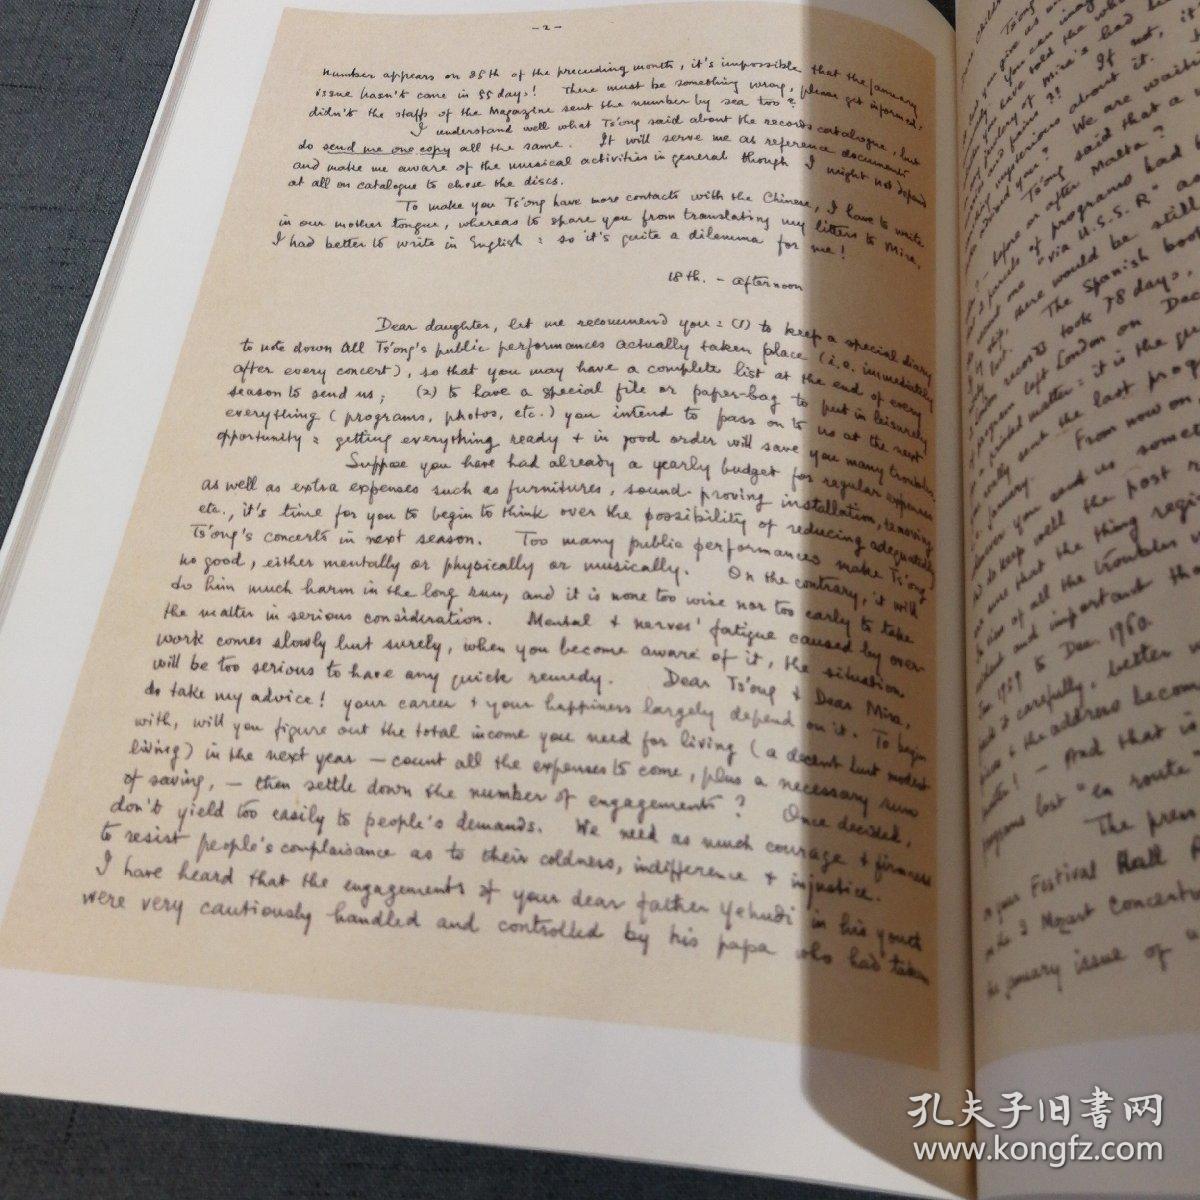 - 2 -
number appears on 25th of the preceeding month, it's impossible that the January
issue hasn't come in 55 days! There must be something wrong, please get informed,
didn't the staff of the Magazine sent the number by sea too?
I understand well what Ts'ong said about the records catalogue, but
do send me one copy all the same. It will serve me as reference documents
and make me aware of the musical activities in general though I might not depend
at all on catalogue to chose the discs.
To make you Ts'ong have more contacts with the Chinese, I have to write
in our mother tongue, whereas to spare you from translating my letters to Mira,
I had better to write in English: so it's quite a dilemma for me!
18th. - afternoon
Dear daughter, let me recommend you: (1) to keep a special diary
to note down all Ts'ong's public performances actually taken place (i.e. immediately
after every concert), so that you may have a complete list at the end of every
season to send us; (2) to have a special file or paper-bag to put in leisurely
everything (programs, photos, etc.) you intend to pass on to us at the next
opportunity: getting everything ready + in good order will save you many troubles.
Suppose you have had already a yearly budget for regular expenses
as well as extra expenses such as furnitures, sound-proving installation, removing
etc., it's time for you to begin to think over the possibility of reducing adequately
Ts'ong's concerts in next season. Too many public performances make Ts'ong
no good, either mentally or physically or musically. On the contrary, it will
do him much harm in the long run, and it is none too wise nor too early to take
the matter in serious consideration. Mental + nerves' fatigue caused by over-
work comes slowly but surely, when you become aware of it, the situation
will be too serious to have any quick remedy. Dear Ts'ong + Dear Mira,
do take my advice! your career + your happiness largely depend on it. To begin
with, will you figure out the total income you need for living (a decent but modest
living) in the next year — count all the expenses to come, plus a necessary sum
of saving, — then settle down the number of engagements? Once decided,
don't yield too easily to people's demands. We need as much courage + firmness
to resist people's complaisance as to their coldness, indifference + injustice.
I have heard that the engagements of your dear father Yehudi in his youth
were very cautiously handled and controlled by his papa who had taken
Ts'ong
We are waiting
Ts'ong said that a
before or after Malta?
parcels of programs had
"via U.S.S.R"
there would be still
The Spanish book
records took 78 days.
left London on Dec
printed matter: it is the
sent the last prog
From now on,
and us somet
keep well the post
sure that the thing
of all the troubles
and important
1959 to Dec. 1960.
it carefully, better
+ the address becom
! - And that is
programs lost "en route"
The prem
Festival Hall
3 Mozart Concertos
January issue of
孔夫子旧書网
www.kongfz.com